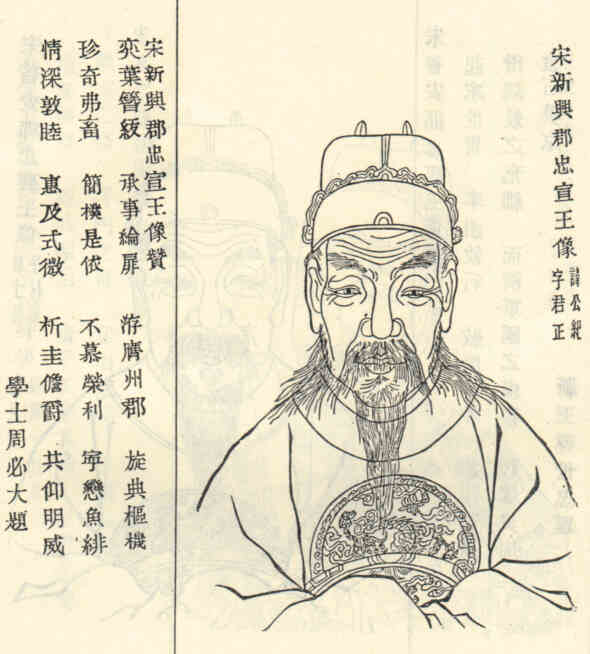 宋新興郡忠宣王像
諱公紀
字君正
宋新興郡忠宣王像贊
奕葉簪紱 承事綸扉 洊膺州郡 旋典樞機
珍奇弗畜 簡樸是依 不慕榮利 寧戀魚緋
情深敦睦 惠及式微 析圭儋爵 共仰明威
學士周必大題